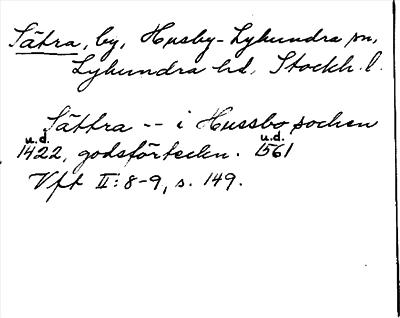 Sätra, by, Husby-Lyhundra sn,
Lyhundra hd, Stockh. l.
Sättra -- i Hussbo sochen
u.d. u.d.
1422, godsförteckn. 1561
Vft II:8-9, s. 149.